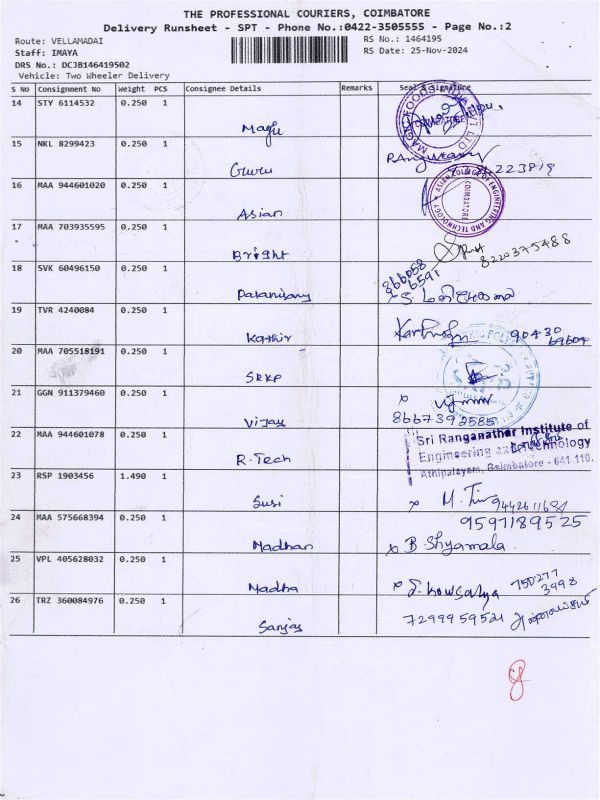 THE PROFESSIONAL COURIERS, COIMBATORE
Delivery Runsheet - SPT - Phone No.:0422-3505555 - Page No.:2
Route: VELLAMADAI
RS No.: 1464195
Staff: IMAYA
RS Date: 25-Nov-2024
DRS No.: DCJB146419502
Vehicle: Two Wheeler Delivery
S No Consignment No Weight PCS Consignee Details Remarks Seal & Signature
14 STY 6114532 0.250 1
Magic
MAGIC FOODS INDIA PVT LTD
15 NKL 8299423 0.250 1
Guru
16 MAA 944601020 0.250 1
Asian
ASIAN COLLEGE OF ENGINEERING AND TECHNOLOGY
COIMBATORE
17 MAA 703935595 0.250 1
Bright
8220375488
18 SVK 60496150 0.250 1
Palanisamy
866058
6591
19 TVR 4240084 0.250 1
Kathir
90430
20 MAA 705518191 0.250 1
SRKP
21 GGN 911379460 0.250 1
Vijay
8667392585
22 MAA 944601078 0.250 1
R.Tech
Sri Ranganathar Institute of
Engineering and Technology
Athipalayam, Coimbatore - 641 110.
23 RSP 1903456 1.490 1
Susi
24 MAA 575668394 0.250 1
9597189525
Madhan
x B. Shyamala
25 VPL 405628032 0.250 1
Madha
x S. Kowsalya 750277
3998
26 TRZ 360084976 0.250 1
Sanjay
7299959521